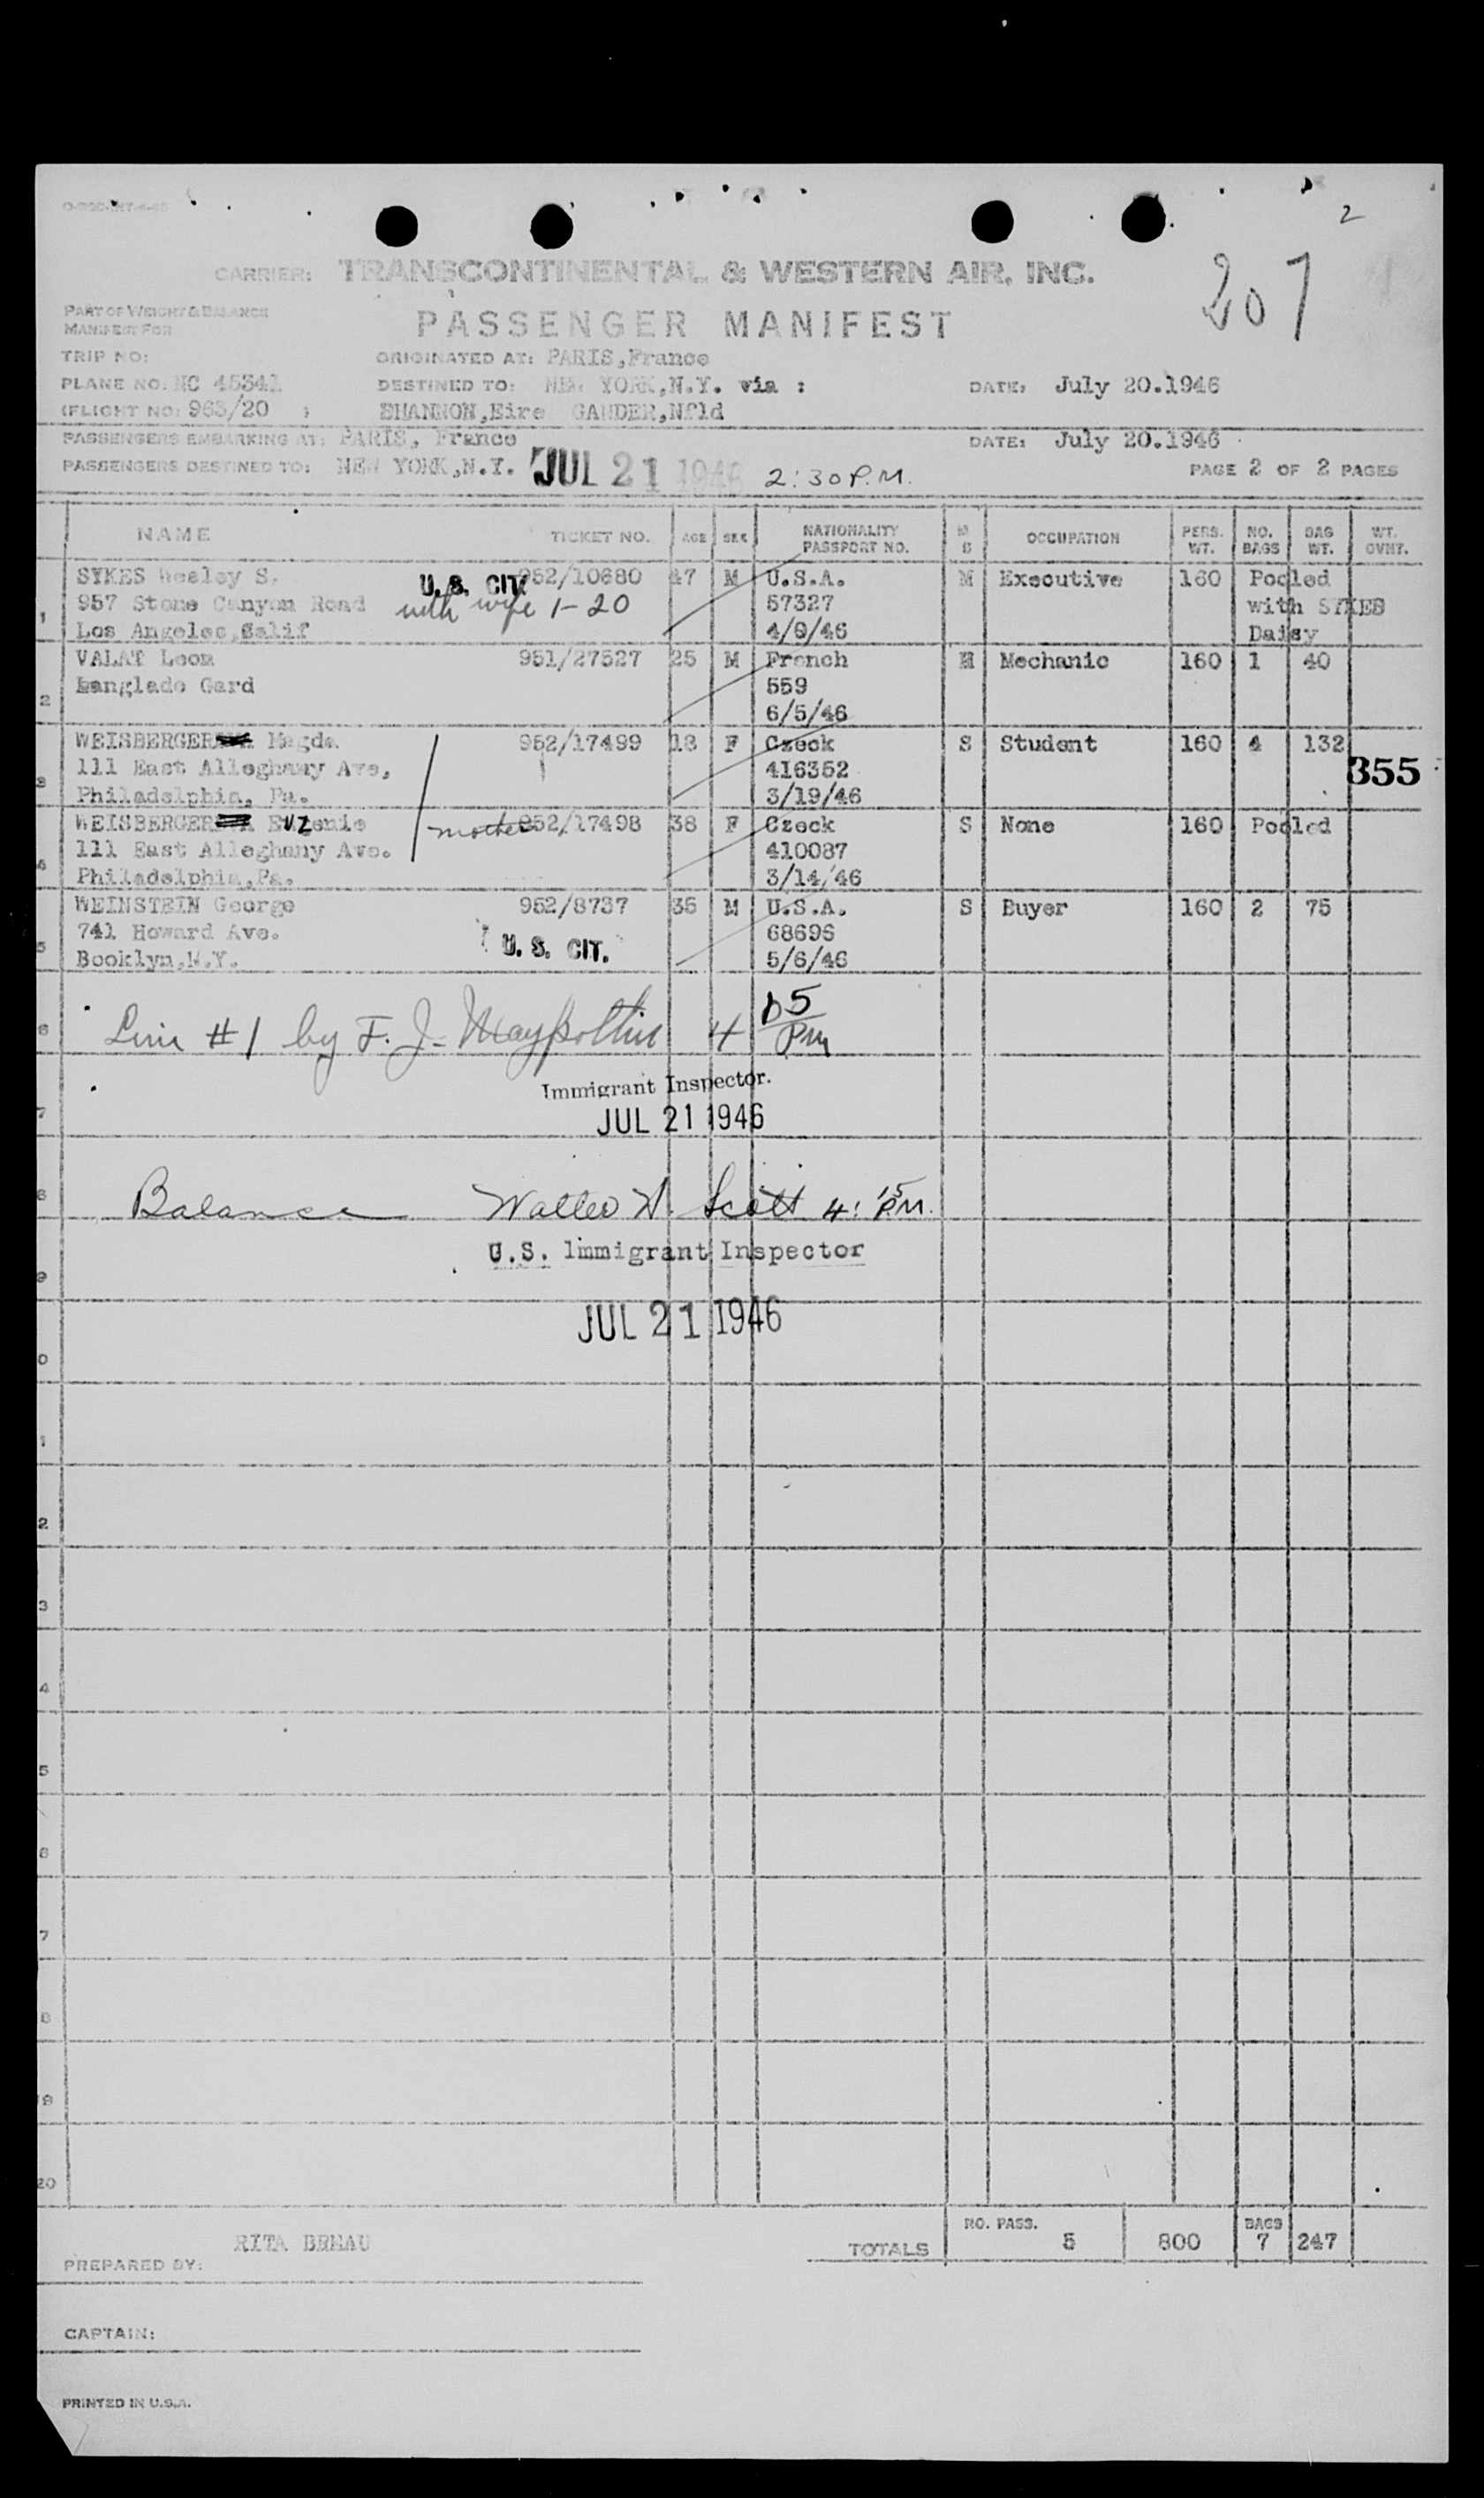 2
207
CARRIER: TRANSCONTINENTAL & WESTERN AIR, INC.
PART OF WEIGHT & BALANCE
MANIFEST FOR
PASSENGER MANIFEST
TRIP NO: ORIGINATED AT: PARIS,France
PLANE NO. NC 45341 DESTINED TO: NEW YORK,N.Y. via : DATE: July 20.1946
(FLIGHT NO: 963/20 ) SHANNON,Eire GANDER,Nfld
PASSENGERS EMBARKING AT: PARIS, France DATE: July 20.1946
PASSENGERS DESTINED TO: NEW YORK,N.Y. JUL 21 1946 2:30 P.M. PAGE 2 OF 2 PAGES
NAME TICKET NO. AGE SEX NATIONALITY PASSPORT NO. M S OCCUPATION PERS. WT. NO. BAGS BAG WT. WT. OVNT.
1 SYKES Wesley S. U.S. CIT. 952/10680 47 M U.S.A. M Executive 160 Pooled
957 Stone Canyon Road with wife 1-20 57327 with SYKES
Los Angeles,Calif 4/9/46 Daisy
2 VALAT Leon 951/27527 25 M French M Mechanic 160 1 40
Langlade Gard 559
6/5/46
3 WEISBERGER Magda 952/17499 18 F Czeck S Student 160 4 132
111 East Alleghany Ave, 416352 355
Philadelphia, Pa. 3/19/46
4 WEISBERGER Euzenie mother 952/17498 38 F Czeck S None 160 Pooled
111 East Alleghany Ave. 410087
Philadelphia,Pa. 3/14/46
5 WEINSTEIN George 952/8737 35 M U.S.A. S Buyer 160 2 75
741 Howard Ave. U. S. CIT. 68696
Booklyn,N.Y. 5/6/46
6 Line #1 by F. J. 4 05 Pm
Immigrant Inspector.
7 JUL 21 1946
8 Balance Walter W. Scott 4:15 P.M.
U.S. Immigrant Inspector
9
JUL 21 1946
0
1
2
3
4
5
6
7
8
19
20
NO. PASS. BAGS
RITA BREAU TOTALS 5 800 7 247
PREPARED BY:
CAPTAIN:
PRINTED IN U.S.A.